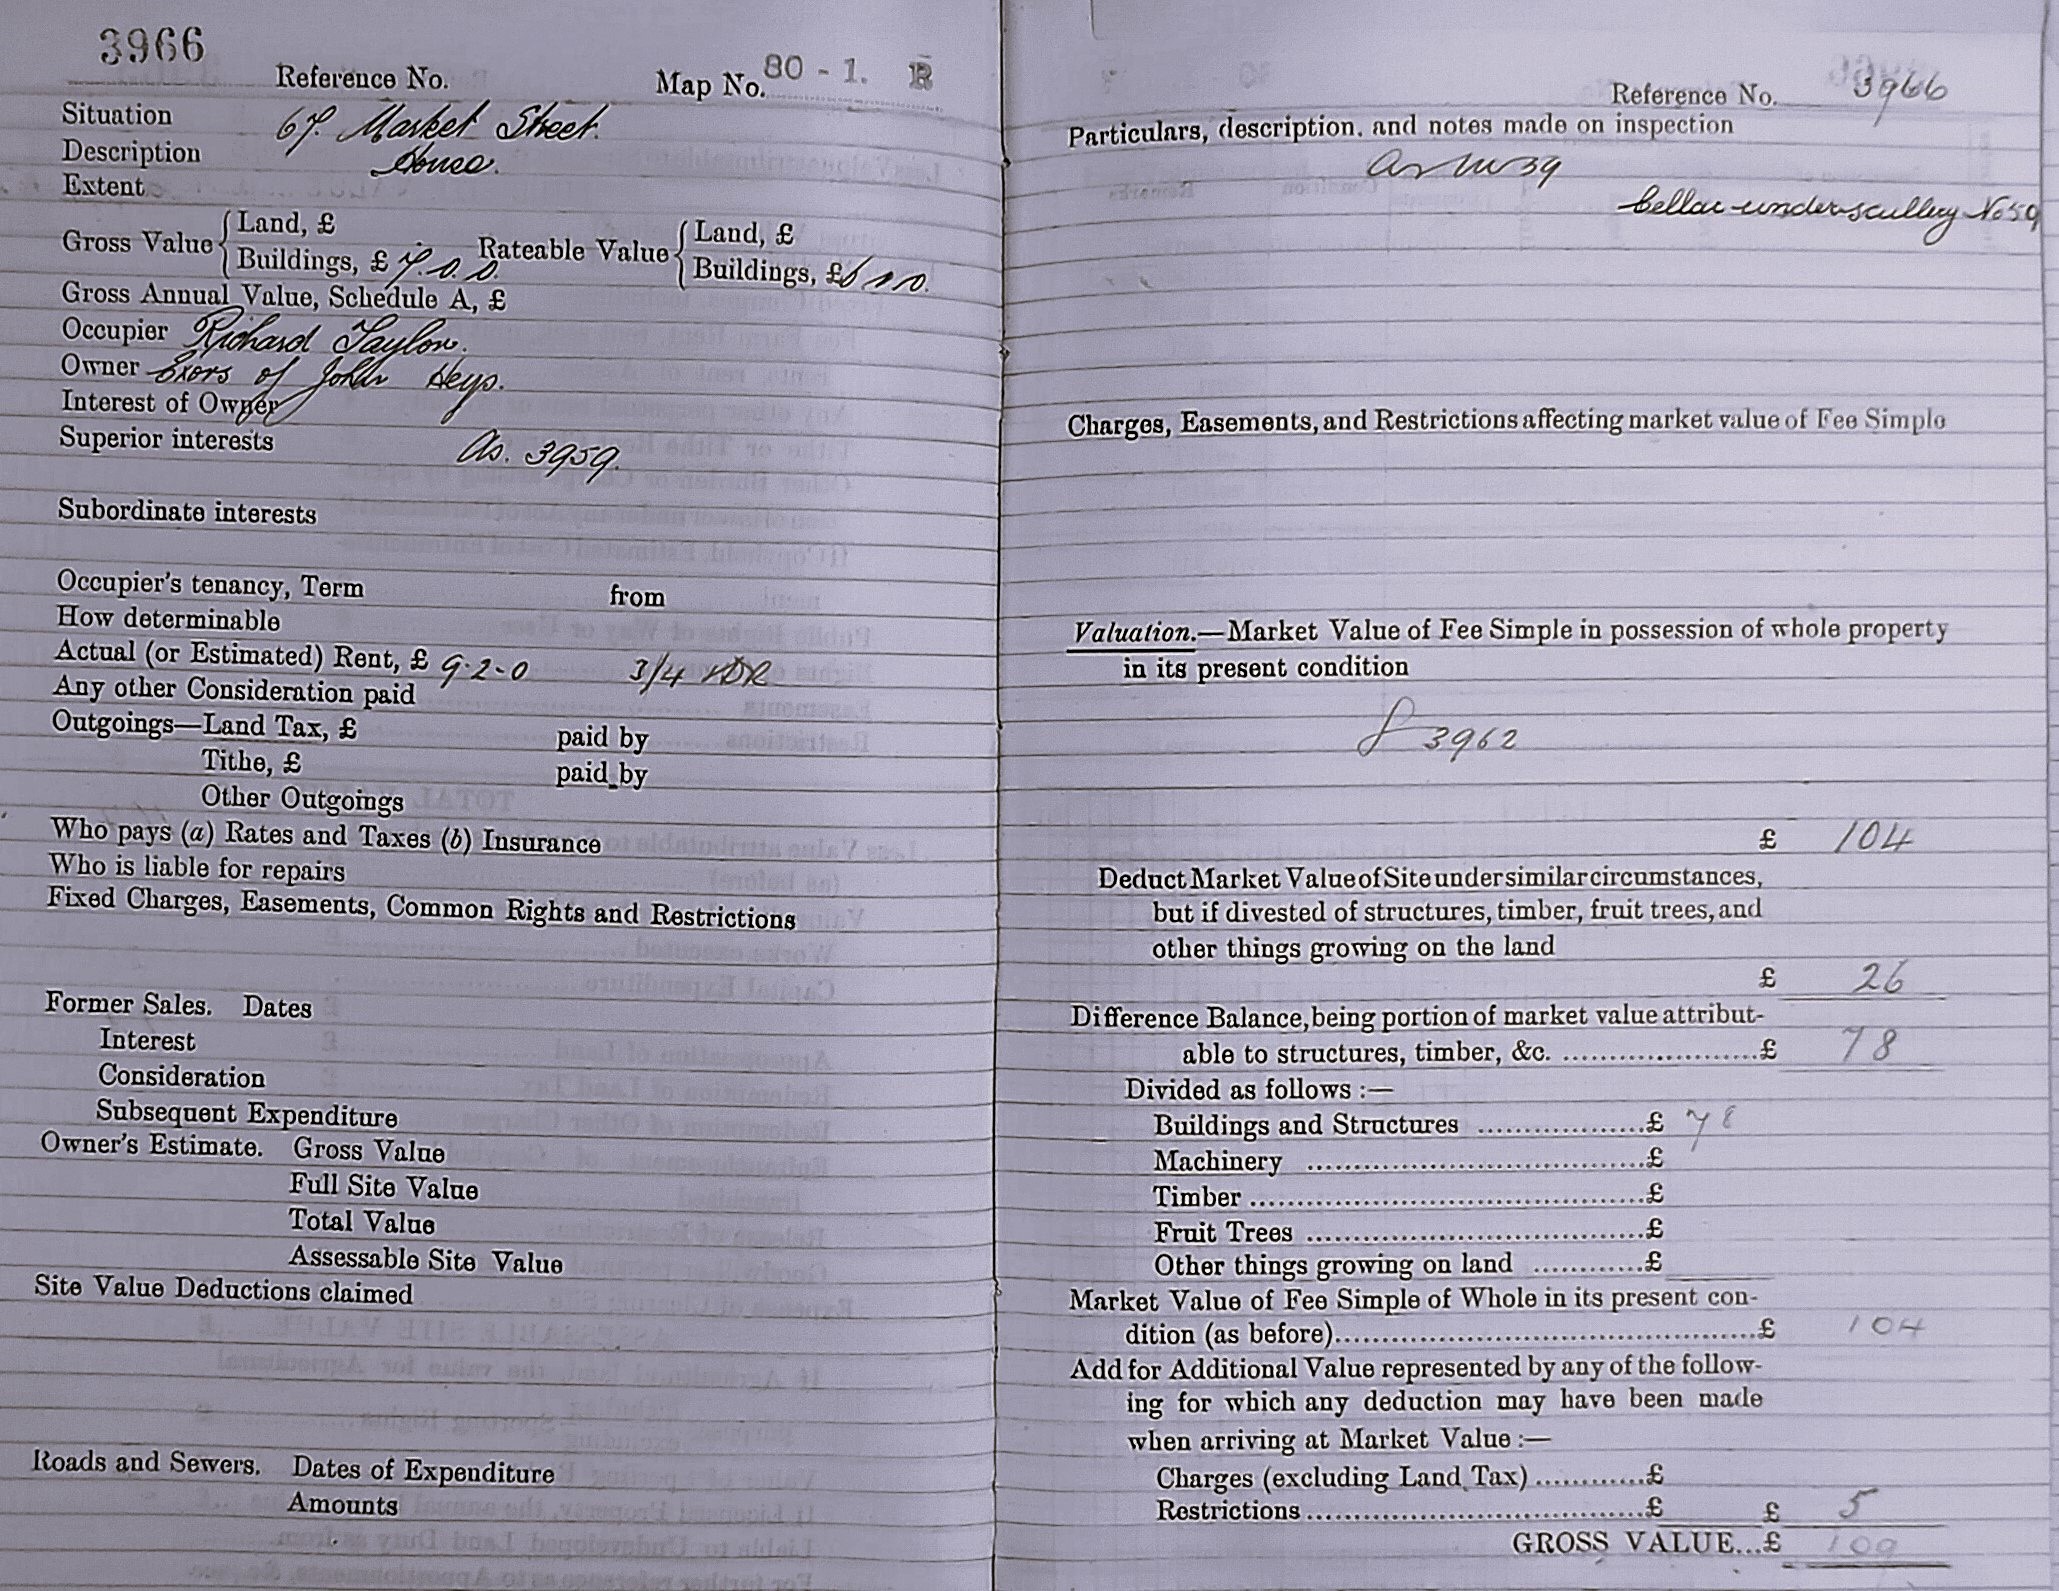 3966
Reference No. Map No. 80 - 1. B
Situation 67. Market Street.
Description House.
Extent
Gross Value { Land, £
Buildings, £ 7. 0. 0. Rateable Value { Land, £
Buildings, £
Gross Annual Value, Schedule A, £
Occupier Richard Taylor.
Owner Exors of John Heys.
Interest of Owner
Superior interests As. 3959.
Subordinate interests
Occupier's tenancy, Term from
How determinable
Actual (or Estimated) Rent, £ 9-2-0 3/4
Any other Consideration paid
Outgoings—Land Tax, £ paid by
Tithe, £ paid by
Other Outgoings
Who pays (a) Rates and Taxes (b) Insurance
Who is liable for repairs
Fixed Charges, Easements, Common Rights and Restrictions
Former Sales. Dates
Interest
Consideration
Subsequent Expenditure
Owner's Estimate. Gross Value
Full Site Value
Total Value
Assessable Site Value
Site Value Deductions claimed
Roads and Sewers. Dates of Expenditure
Amounts
Reference No. 3966
Particulars, description. and notes made on inspection
as
Cellar under scullery No 59
Charges, Easements, and Restrictions affecting market value of Fee Simple
Valuation.—Market Value of Fee Simple in possession of whole property
in its present condition
3962
£ 104
Deduct Market Value of Site under similar circumstances,
but if divested of structures, timber, fruit trees, and
other things growing on the land
£ 26
Difference Balance, being portion of market value attribut-
able to structures, timber, &c. ........................£ 78
Divided as follows :—
Buildings and Structures ..................£ 78
Machinery ......................................£
Timber .............................................£
Fruit Trees ......................................£
Other things growing on land ............£
Market Value of Fee Simple of Whole in its present con-
dition (as before)................................................£ 104
Add for Additional Value represented by any of the follow-
ing for which any deduction may have been made
when arriving at Market Value :—
Charges (excluding Land Tax) ............£
Restrictions......................................£ £ 5
GROSS VALUE...£ 109